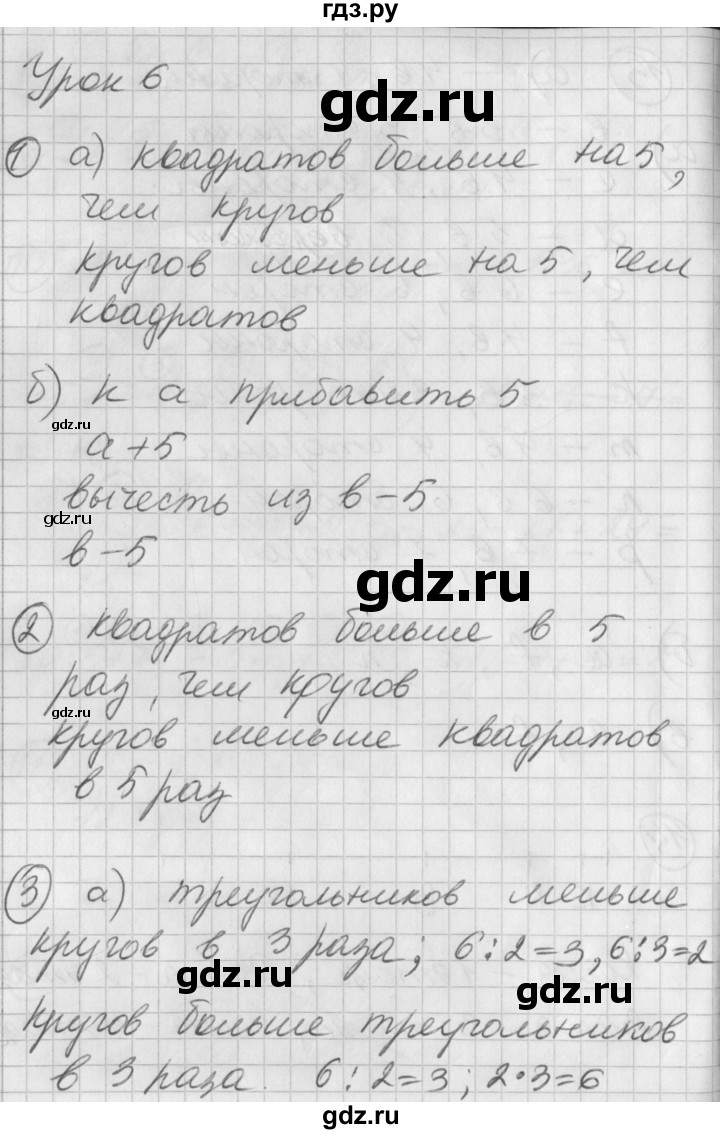 гдз.ру
Урок 6
gdz.ru
1 а) квадратов больше на 5,
чем кругов
кругов меньше на 5, чем
квадратов
б) к а прибавить 5
gdz.ru
а+5
вычесть из в-5
gdz.ru
в-5
gdz.ru
2 квадратов больше в 5
раз, чем кругов
gdz.ru
кругов меньше квадратов
в 5 раз
3 а) треугольников меньше
кругов в 3 раза; 6:2=3, 6:3=2
gdz.ru
gdz.ru
кругов больше треугольников
в 3 раза. 6:2=3; 2·3=6
gdz.ru